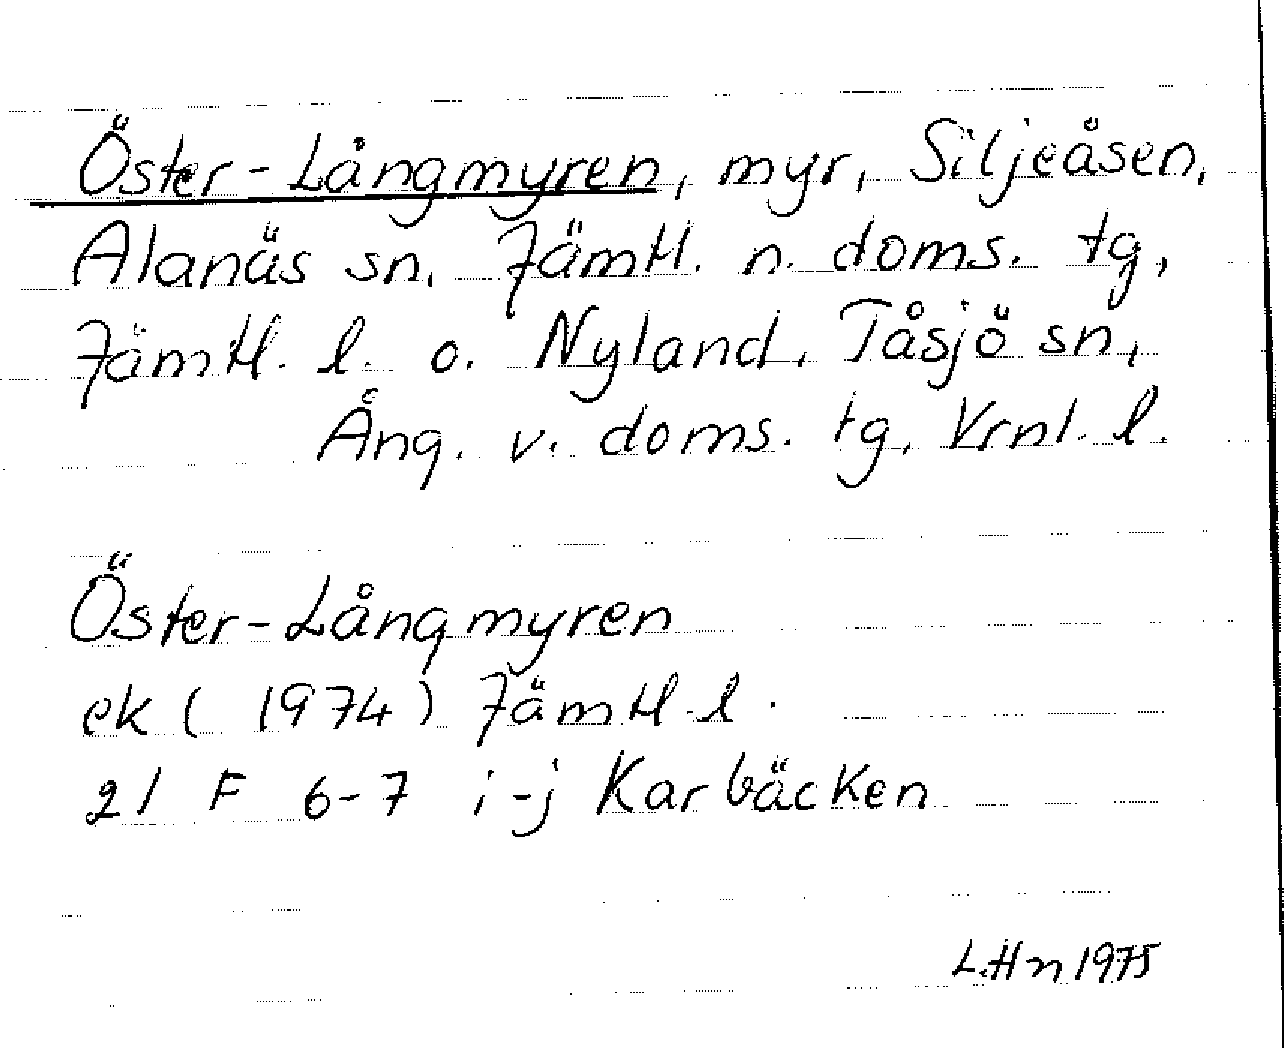 Öster-Långmyren, myr, Siljeåsen,
Alanäs sn, Jämtl. n. doms. tg,
Jämtl. l. o. Nyland, Tåsjö sn,
Ång. v. doms. tg, Vrnl. l.
Öster-Långmyren
ek ( 1974) Jämtl. l.
21 F 6-7 i-j Karbäcken
L.Hn 1975